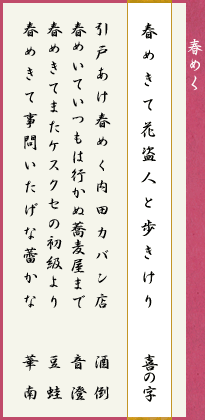 春めく
春めきて花盗人と歩きけり　喜の字
引戸あけ春めく内田カバン店　酒倒
春めいていつもは行かぬ蕎麦屋まで　音澄
春めきてまたケスクセの初級より　豆蛙
春めきて事問いたげな蕾かな　華南